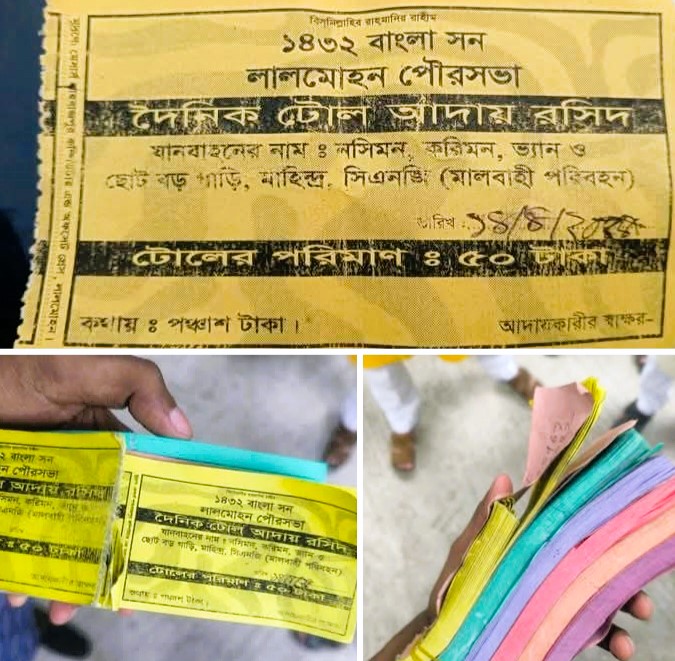 বিসমিল্লাহির রাহমানির রাহীম
১৪৩২ বাংলা সন
লালমোহন পৌরসভা
দৈনিক টোল আদায় রসিদ
যানবাহনের নাম ঃ নসিমন, করিমন, ভ্যান ও
ছোট বড় গাড়ি, মাহিন্দ্র, সিএনজি (মালবাহী পরিবহন)
তারিখ
টোলের পরিমাণ ঃ ৫০ টাকা
কথায় ঃ পঞ্চাশ টাকা।
আদায়কারীর স্বাক্ষর-
২ বাংলা সন
ন পৌরসভা
আদায় রসিদ
সিমন, করিমন, ভ্যান ও
(মালবাহী পরিবহন)
ঃ ৫০ টাকা
১৪৩২ বাংলা সন
লালমোহন পৌরসভা
দৈনিক টোল আদায় রসিদ
যানবাহনের নাম ঃ নসিমন, করিমন, ভ্যান ও
ছোট বড় গাড়ি, মাহিন্দ্র, সিএনজি (মালবাহী পরিবহন)
টোলের পরিমাণ ঃ ৫০ টাকা
কথায় ঃ পঞ্চাশ টাকা।
আদায়কারীর স্বাক্ষর-